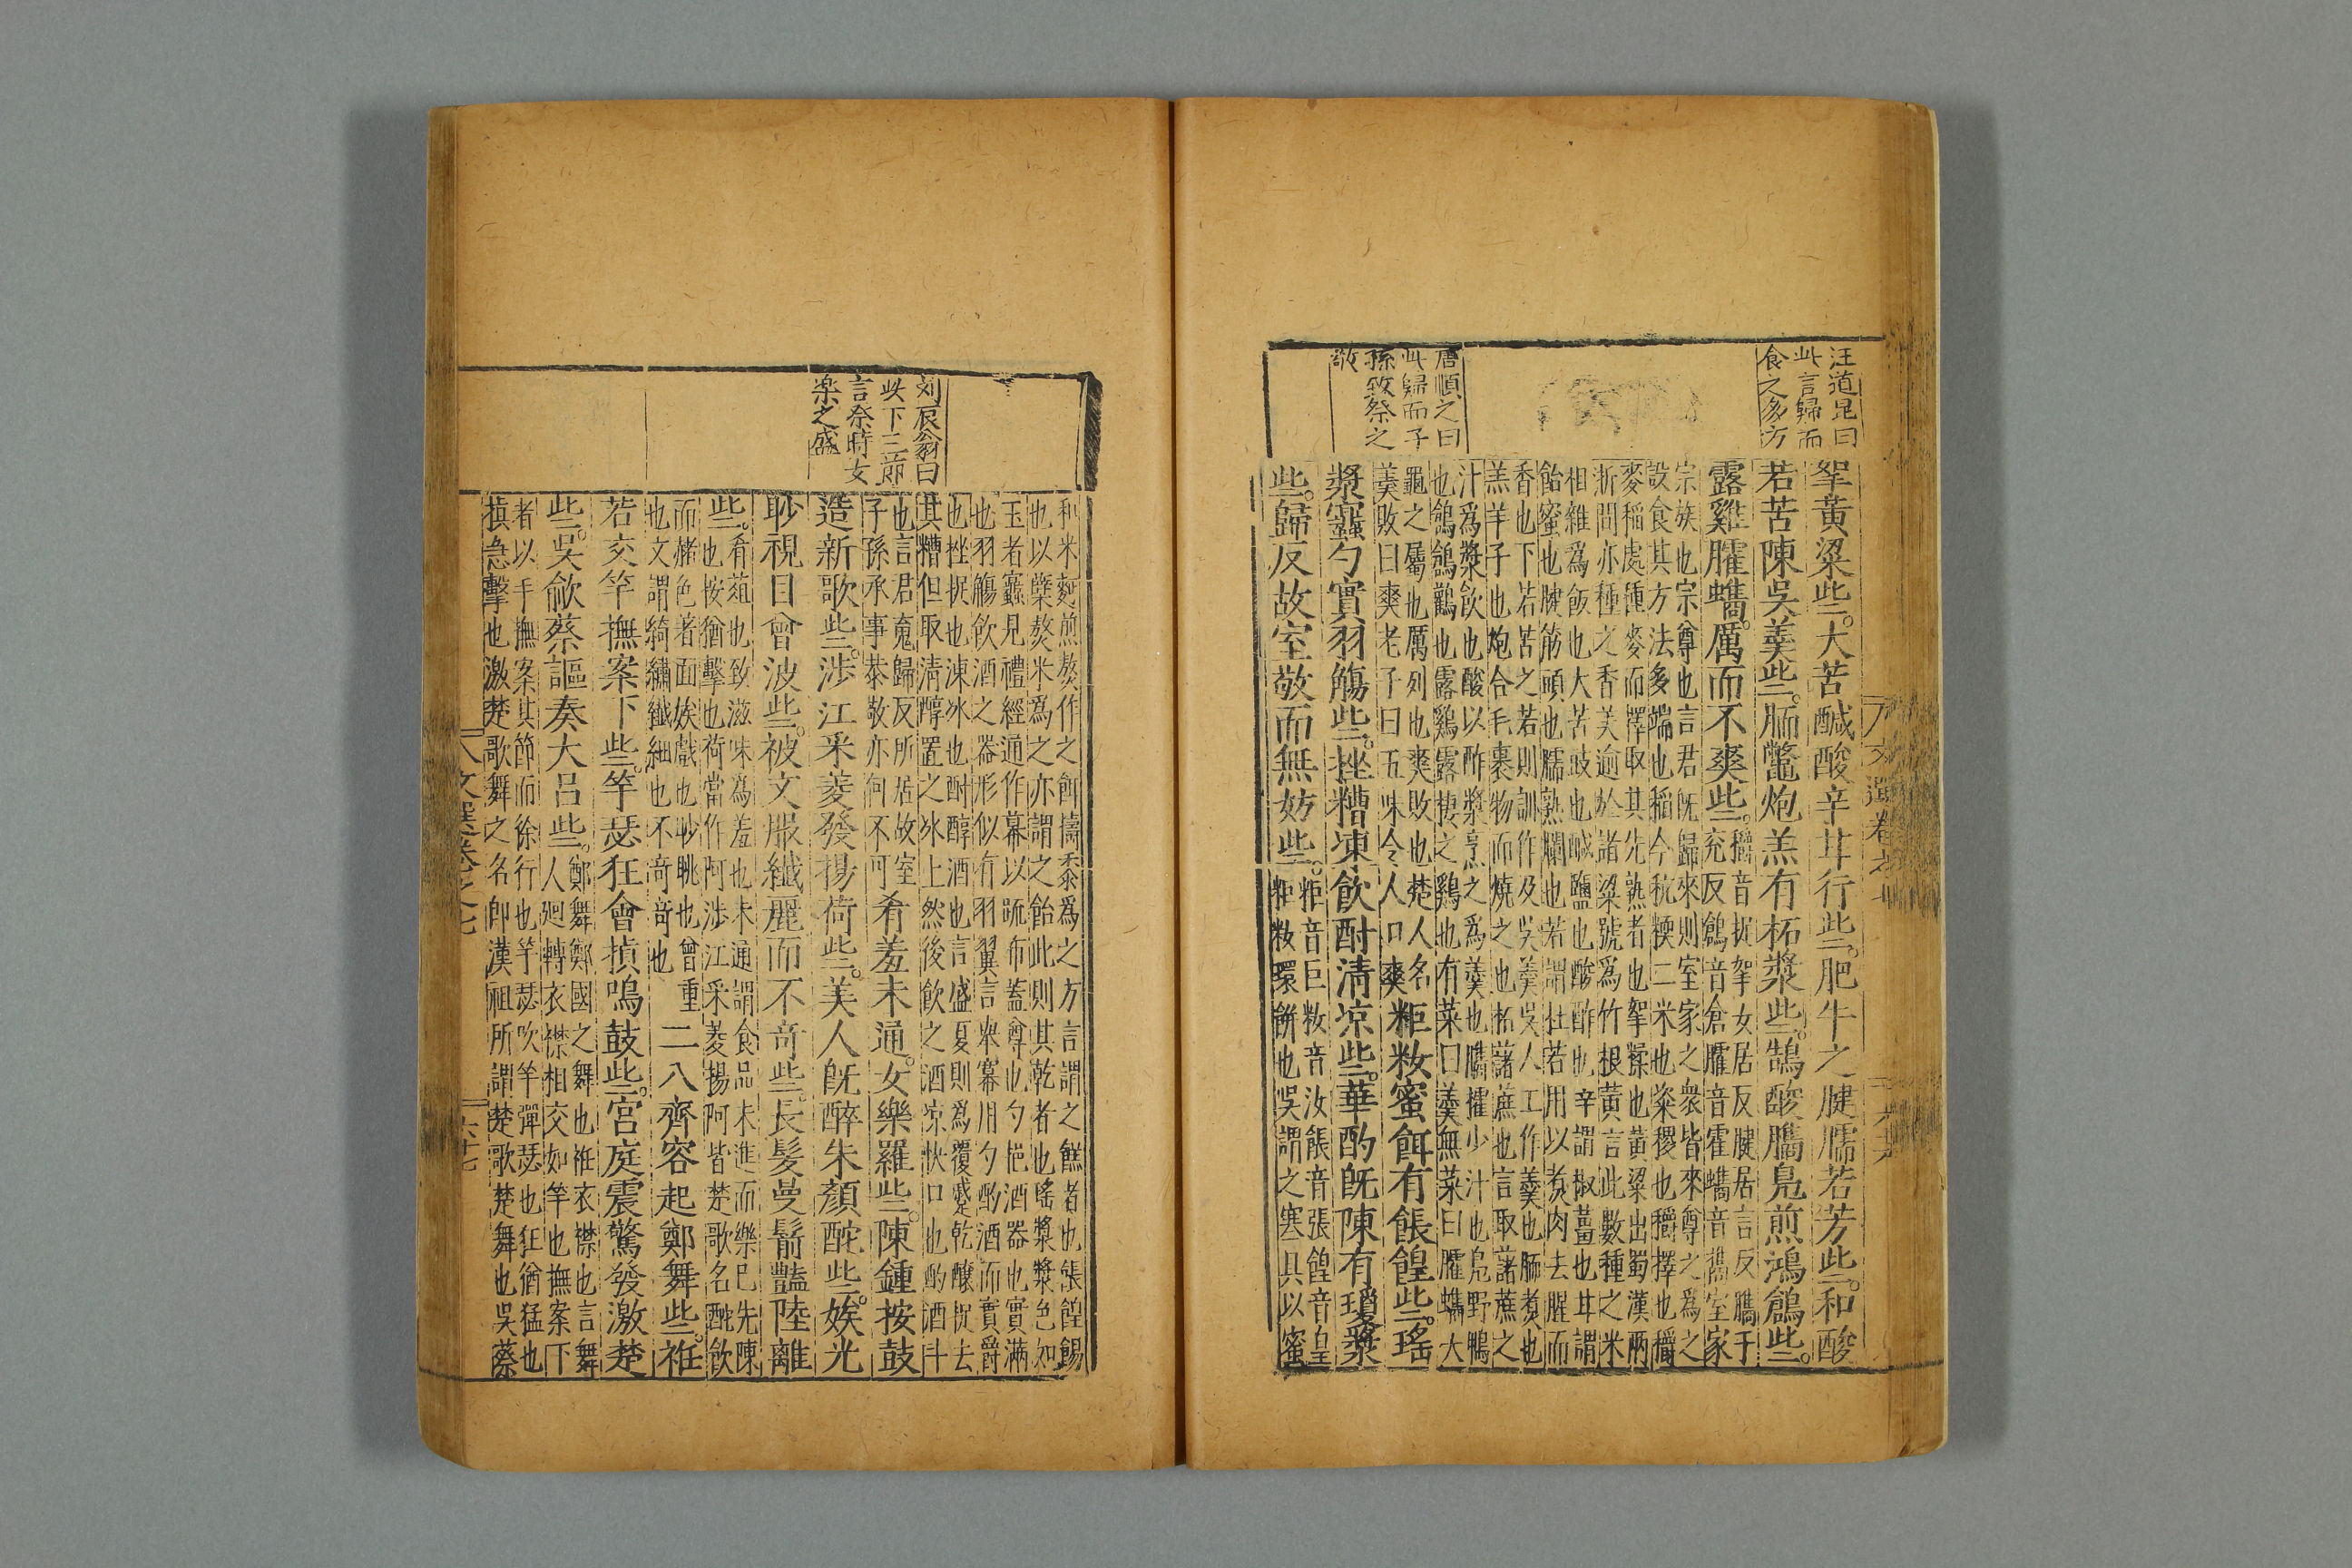 汪道昆曰
此言歸而
食之多方
唐順之曰
此歸而子
孫致祭之
敬
挐黃粱些。大苦醎酸辛甘行些。肥牛之腱臑若芳些。和酸
若苦陳吳羹些。胹鼈炮羔有柘漿些。鵠酸臇鳧煎鴻鶬些。
露雞臛蠵。厲而不爽些。
穱音捉挐女居反腱居言反臇子
充反鶬音倉臛音霍蠵音攜室家
宗族也宗尊也言君旣歸來則室家之衆皆來尊之爲之
設食其方法多端也稻今秔稉二米也粢稷也穱擇也穱
麥稻處種麥而擇取其先熟者也挐糅也黃粱出蜀漢兩
浙間亦種之香美逾於諸粱號爲竹根黃言此數種之米
相雜爲飯也大苦豉也醎鹽也酸酢也辛謂椒薑也甘謂
飴蜜也腱筋頭也臑熟爛也若謂杜若用以煑肉去腥而
香也下若苦之若則訓作及吳羹吳人工作羹也胹煑也
羔羊子也炮合毛裹物而燒之也柘藷蔗也言取藷蔗之
汁爲漿飲也酸以酢漿烹之爲羹也臇㩁少汁也鳧野鴨
也鶬鶬鸛也露雞露棲之鷄也有菜曰羹無菜曰臛蠵大
龜之屬也厲列也爽敗也楚人名
羹敗曰爽老子曰五味令人口爽
粔籹蜜餌有餦餭些。瑤
漿靁勺實羽觴些。挫糟凍飲酎清凉些。華酌旣陳有瓊漿
些。歸反故室敬而無妨些。
粔音巨籹音汝餦音張餭音皇
粔籹環餠也吳謂之寒具以蜜
文選卷之七
六十六
刘辰翁曰
此下三節
言祭時女
楽之盛
和米麪煎熬作之餌擣黍爲之方言謂之餻者也餦餭餳
也以糵熬米爲之亦謂之飴此則其乾者也瑤漿漿色如
玉者靁見禮經通作幕以疏布蓋尊也勺挹酒器也實滿
也羽觴飲酒之器形似有羽翼言舉冪用勺酌酒而實爵
也挫捉也凍冰也酎醇酒也言盛夏則爲覆蹙乾釀捉去
其糟但取清醇置之冰上然後飲之酒凉快口也酌酒斗
也言君䰟歸反所居故室
子孫承事恭敬亦何不可
肴羞未通。女樂羅些。陳鍾按鼓
造新歌些。涉江采菱發揚荷些。美人旣醉朱顏酡些。娭光
眇視目曾波些。被文服纖麗而不竒些。長髮曼鬋豔陸離
些。
肴葅也致滋味為羞也未通謂食品未進而樂已先陳
也按猶擊也荷當作阿涉江采菱揚阿皆楚歌名酡飲
而赭色著面娭戲也眇眺也曾重
也文謂綺繡纖細也不竒竒也
二八齊容起鄭舞些。袵
若交竿撫案下些。竽瑟狂會搷鳴鼓些。宮庭震驚發激楚
些。吳歈蔡謳奏大呂些。
鄭舞鄭國之舞也袵衣襟也言舞
人廻轉衣襟相交如竿也撫案下
者以手撫案其節而徐行也竽瑟吹竽彈瑟也狂猶猛也
搷急擊也激楚歌舞之名卽漢祖所謂楚歌楚舞也吳蔡
文選卷之七
六十七